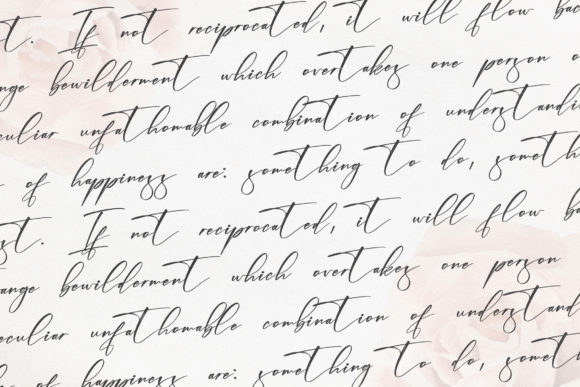 st. If not reciprocated, it will flow bac
ange bewilderment which overtakes one person o
eculiar unfathomable combination of understandi
s of happiness are: something to do, someth
st. If not reciprocated, it will flow ba
ange bewilderment which overtakes one person
eculiar unfathomable combination of understand
of happiness are: something to do, someti